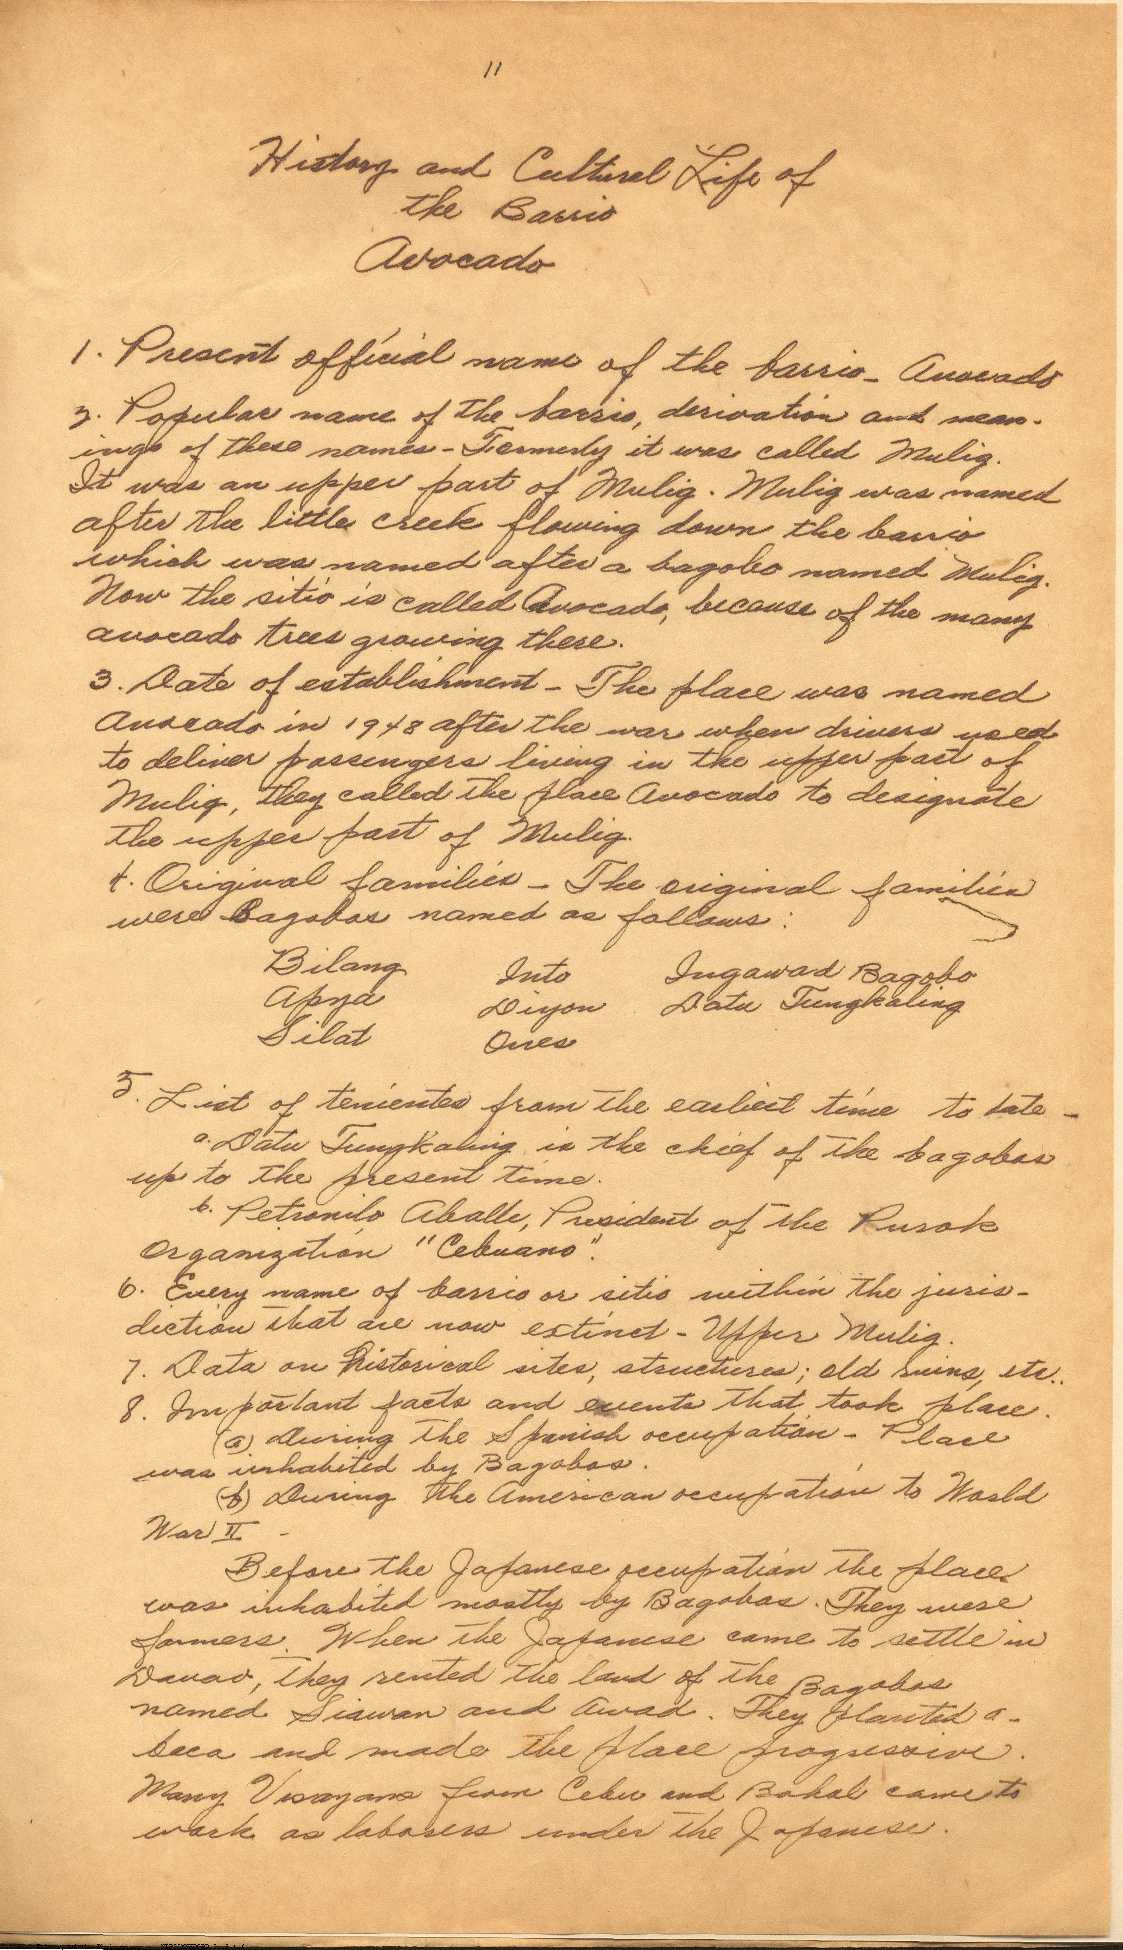 11
History and Cultural Life of
the Barrio
Avocado
1. Present official name of the barrio - Avocado
2. Popular name of the barrio, derivation and mean-
ings of these names - Formerly it was called Mulig.
It was an upper part of Mulig. Mulig was named
after the little creek flowing down the barrio
which was named after a bagobo named Mulig.
Now the sitio is called Avocado, because of the many
avocado trees growing there.
3. Date of establishment - The place was named
Avocado in 1948 after the war when drivers used
to deliver passengers living in the upper part of
Mulig, they called the place Avocado to designate
the upper part of Mulig.
4. Original families - The original families
were Bagobos named as follows:
Bilang Into Ingawad Bagobo
Apya Diyon Datu Tungkaling
Silat Ones
5. List of tenientes from the earliest time to date -
a. Datu Tungkaling is the chief of the bagobos
up to the present time.
b. Petronilo Aballe, President of the Purok
Organization "Cebuano".
6. Every name of barrio or sitio within the juris-
diction that are now extinct - Upper Mulig.
7. Data on historical sites, structures; old ruins, etc..
8. Important facts and events that took place.
(a) During the Spanish occupation - Place
was inhabited by Bagobos.
(b) During the American occupation to World
War II -
Before the Japanese occupation the place
was inhabited mostly by Bagobos. They were
farmers. When the Japanese came to settle in
Davao, they rented the land of the Bagobos
named Siawan and Awad. They planted a-
baca and made the place progressive.
Many Visayans from Cebu and Bohol came to
work as laborers under the Japanese.